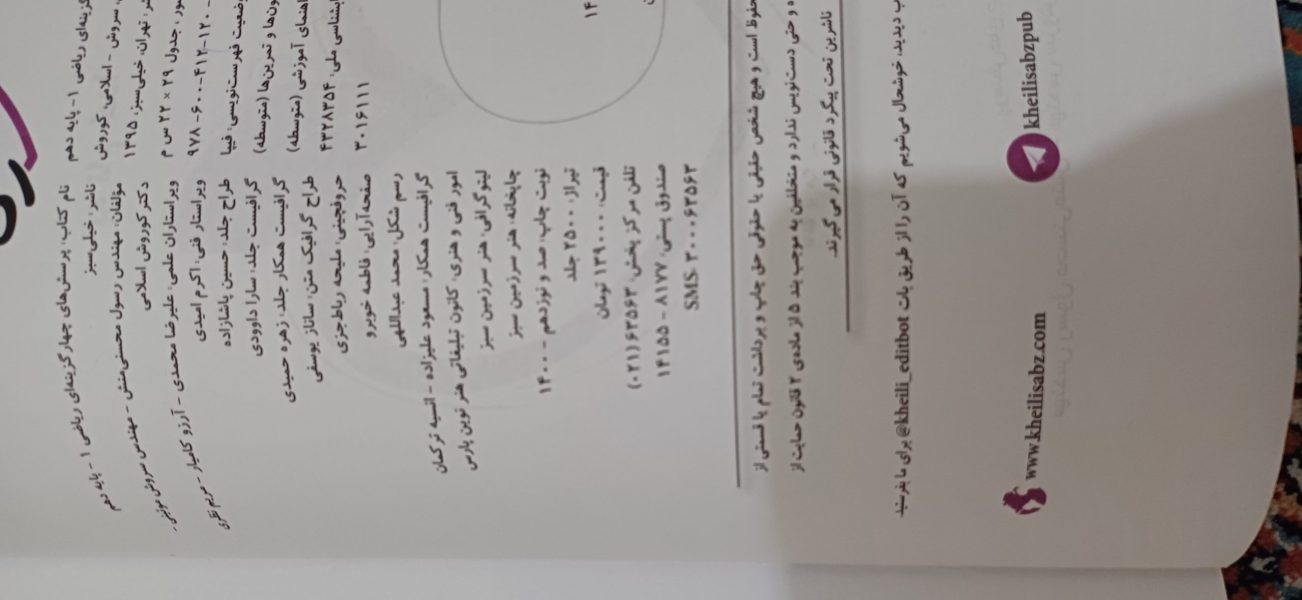 نام کتاب: پرسش‌های چهارگزینه‌ای ریاضی ۱ - پایه دهم
ناشر: خیلی‌سبز
مؤلفان: مهندس رسول محسنی‌منش - مهندس سروش موئینی -
دکتر کوروش اسلامی
ویراستاران علمی: علیرضا محمدی - آرزو کامیار - مریم نظری
ویراستار فنی: اکرم امیدی
طراح جلد: حسین پاشازاده
گرافیست جلد: سارا داوودی
گرافیست همکار جلد: زهره حمیدی
طراح گرافیک متن: ساناز یوسفی
حروفچینی: ملیحه رباط‌جزی
صفحه‌آرایی: فاطمه خوبرو
رسم شکل: محمد عبداللهی
گرافیست همکار: مسعود علیزاده - انسیه ترکمان
امور فنی و هنری: کانون تبلیغاتی هنر نوین پارس
لیتوگرافی: هنر سرزمین سبز
چاپخانه: هنر سرزمین سبز
نوبت چاپ: صد و نوزدهم - ۱۴۰۰
تیراژ: ۲۵۰۰ جلد
قیمت: ۱۳۹۰۰۰ تومان
تلفن مرکز پخش: ۶۳۵۶۳(۰۲۱)
صندوق پستی: ۸۱۷۷ - ۱۴۱۵۵
SMS: ۳۰۰۰۶۳۵۶۳
گزینه‌ای ریاضی ۱- پایه دهم
سروش - اسلامی، کوروش
تهران: خیلی‌سبز، ۱۳۹۵
جدول ۲۹ × ۲۲ س م
۹۷۸-۶۰۰-۴۱۲-۱۲۰-
وضعیت فهرست‌نویسی: فیپا
ون‌ها و تمرین‌ها (متوسطه)
اهنمای آموزشی (متوسطه)
ابشناسی ملی: ۴۳۲۸۳۵۴
۳۰۱۶۱۱۱
حفوظ است و هیچ شخص حقیقی یا حقوقی حق چاپ و برداشت تمام یا قسمتی از
ه و حتی دست‌نویس ندارد و متخلفین به موجب بند ۵ از ماده‌ی ۲ قانون حمایت از
ناشرین تحت پیگرد قانونی قرار می‌گیرند.
ب دیدید، خوشحال می‌شویم که آن را از طریق بات @kheili_editbot برای ما بفرستید.
www.kheilisabz.com
kheilisabzpub